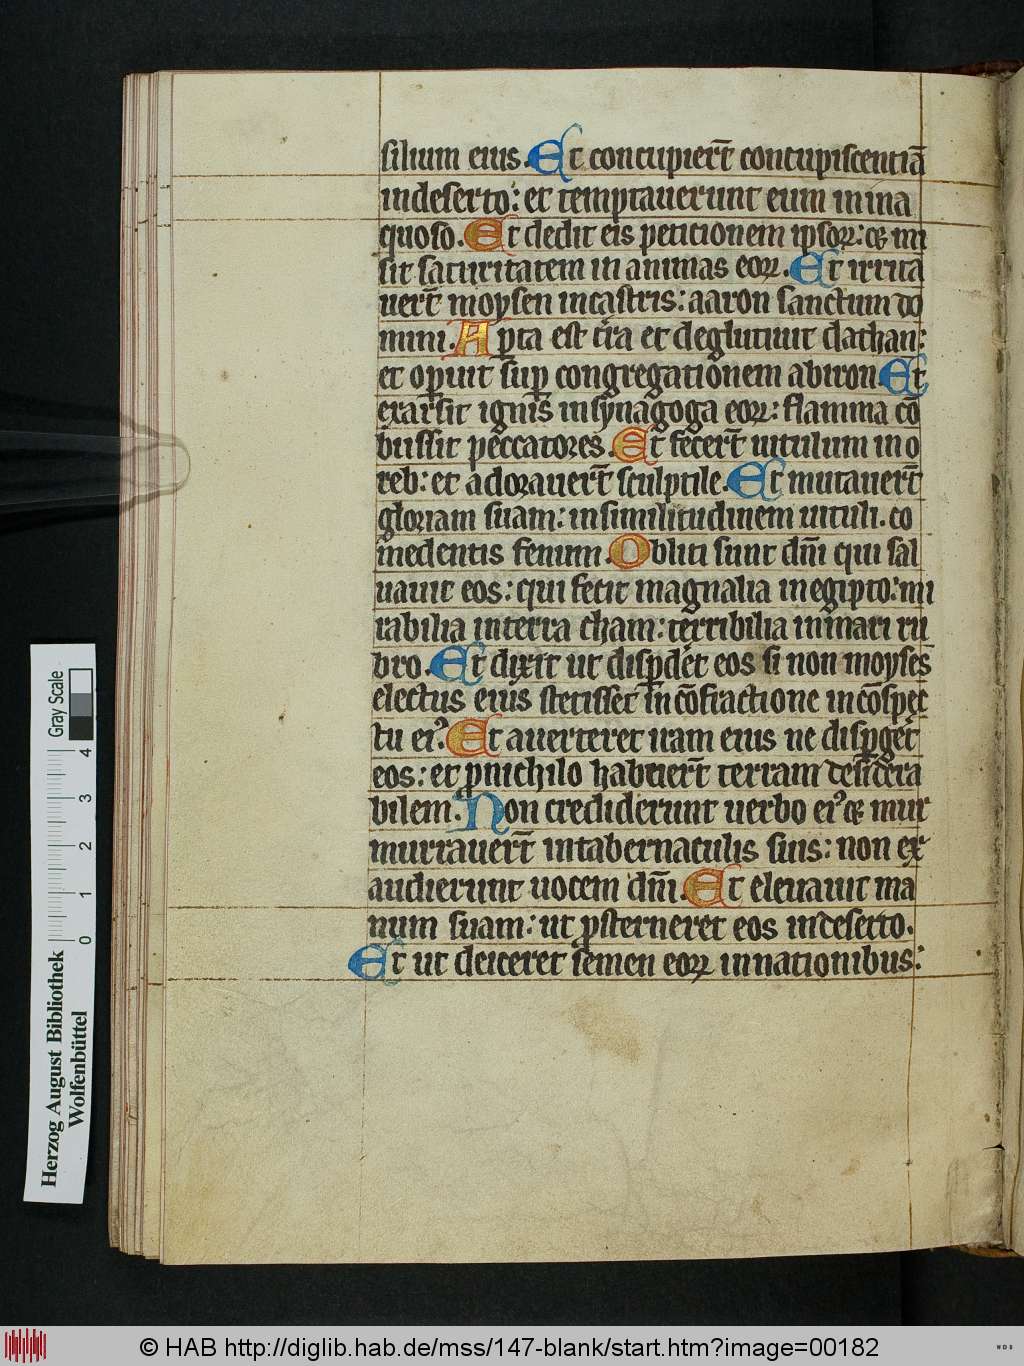 silium eius. Et concupiert̄ concupiscentiā
in deserto: et temptauerunt eum in ina
quoso. Et dedit eis peticionem ipsoꝝ: ⁊ mi
sit saturitatem in animas eoꝝ. Et irrita
uert̄ moysen in castris: aaron sanctum do
mini. Aꝑta est t̄ra et deglutiuit dathan:
et oꝑuit suꝑ congregationem abiron. Et
exarsit ignis in synagoga eoꝝ: flamma cō
bussit peccatores. Et fecert̄ uitulum in o
reb: et adorauert̄ sculptile. Et mutauert̄
gloriam suam: in similitudinem uituli. co
medentis fenum. Obliti sunt dn̄i qui sal
uauit eos: qui fecit magnalia in egipto: mi
rabilia in terra cham: terribilia in mari ru
bro. Et dixit ut disꝑdet eos si non moyses
electus eius stetisset in cōfractione in cōspec
tu eiꝰ. Et auerteret iram eius ne disꝑget
eos: et ꝓ nichilo habuert̄ terram desidera
bilem. Non crediderunt uerbo eiꝰ ⁊ mur
murrauert̄ in tabernaculis suis: non ex
audierunt uocem dn̄i. Et eleuauit ma
num suam: ut ꝓsterneret eos in deserto.
Et ut deiceret semen eoꝝ in nationibus:
Herzog August Bibliothek
Wolfenbüttel
Gray Scale
0 1 2 3 4
© HAB http://diglib.hab.de/mss/147-blank/start.htm?image=00182